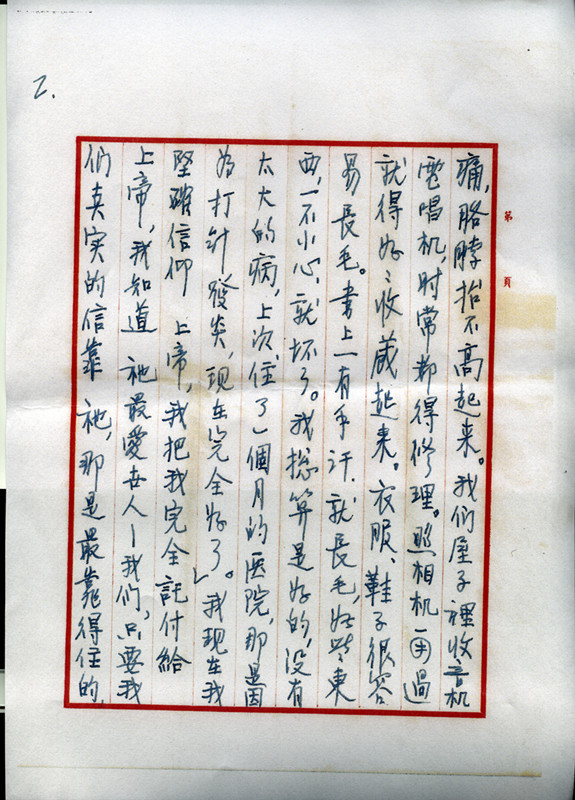 2.
第 頁
痛,胳脖抬不高起来。我们屋子裡收音机
電唱机,时常都得修理。照相机一用過
就得好好收藏起来。衣服、鞋子很容
易長毛。書上一有手汗,就長毛,好些東
西,一不小心,就坏了。我總算是好的,没有
太大的病,上次住了一個月的医院,那是因
為打針發炎,現在完全好了。我現在我
堅確信仰 上帝,我把我完全託付給
上帝,我知道 祂最愛世人—我们,只要我
们真实的信靠 祂,那是最靠得住的,